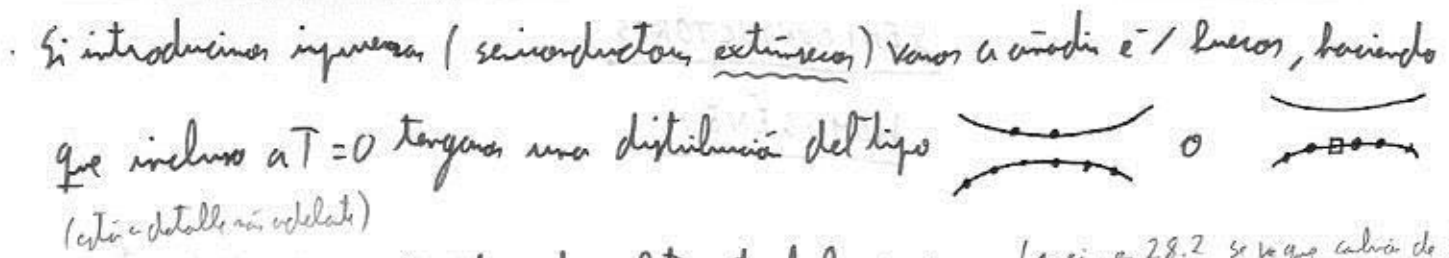 · Si introducimos impurezas (semiconductores extrínsecos) vamos a añadir e⁻ / huecos, haciendo
que incluso a T=0 tengamos una distribución del tipo o
(está a detalle más adelante)
28.2 se ve que de